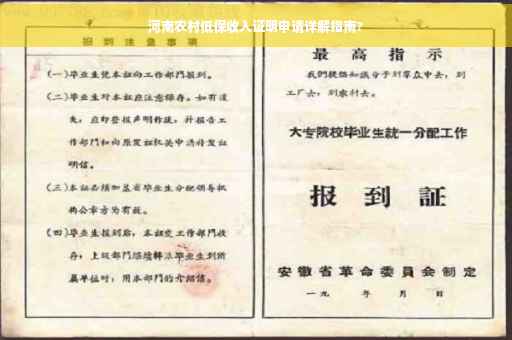 河南农村低保收入证明申请详解指南?
报到注意事项
(一)毕业生凭本证向工作部门报到。
(二)毕业生对本证应注意保存。如有遗
失,应即登报声明作废,并报告工
作部门和向原发证机关申请补发证
明信。
(三)本证必须加盖省毕业生分配领导机
构公章方为有效。
(四)毕业生报到后,本证交工作部门收
存;上级部门继续转派毕业生到所
属单位时,用本部门的介绍信。
最高指示
我们提倡知识分子到群众中去,到
工厂去,到农村去。
大专院校毕业生统一分配工作
报到证
安徽省革命委员会制定
一九 年 月 日